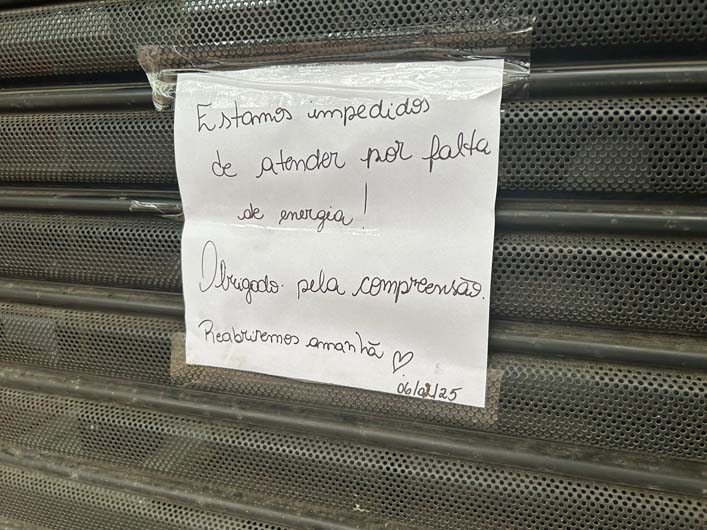 Estamos impedidos
de atender por falta
de energia!
Obrigado pela compreensão.
Reabriremos amanhã ♡
06/02/25